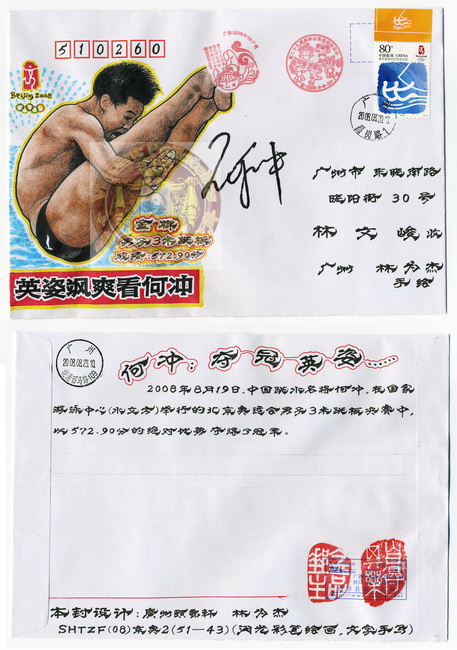 510260
Beijing 2008
80分
中国邮政 CHINA
广州
2008.08.23.10
广州市 东晓南路
晓阳街 30号
林文峻
广州 林为杰
手绘
金牌
男子3米跳板
成绩:572.90分
英姿飒爽看何冲
广州
2008.08.23.10
何冲:夺冠英姿……
2008年8月19日,中国跳水名将何冲,在国家
游泳中心(水立方)举行的北京奥运会男子3米跳板决赛中,
以572.90分的绝对优势夺得了冠军。
本封设计: 广州 林为杰
SHTZF(08)京奥2(51-43)